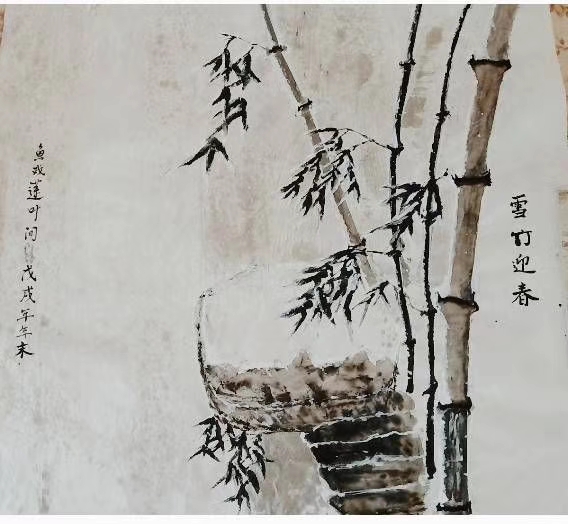 雪竹迎春
鱼戏莲叶间
戊戌年年末